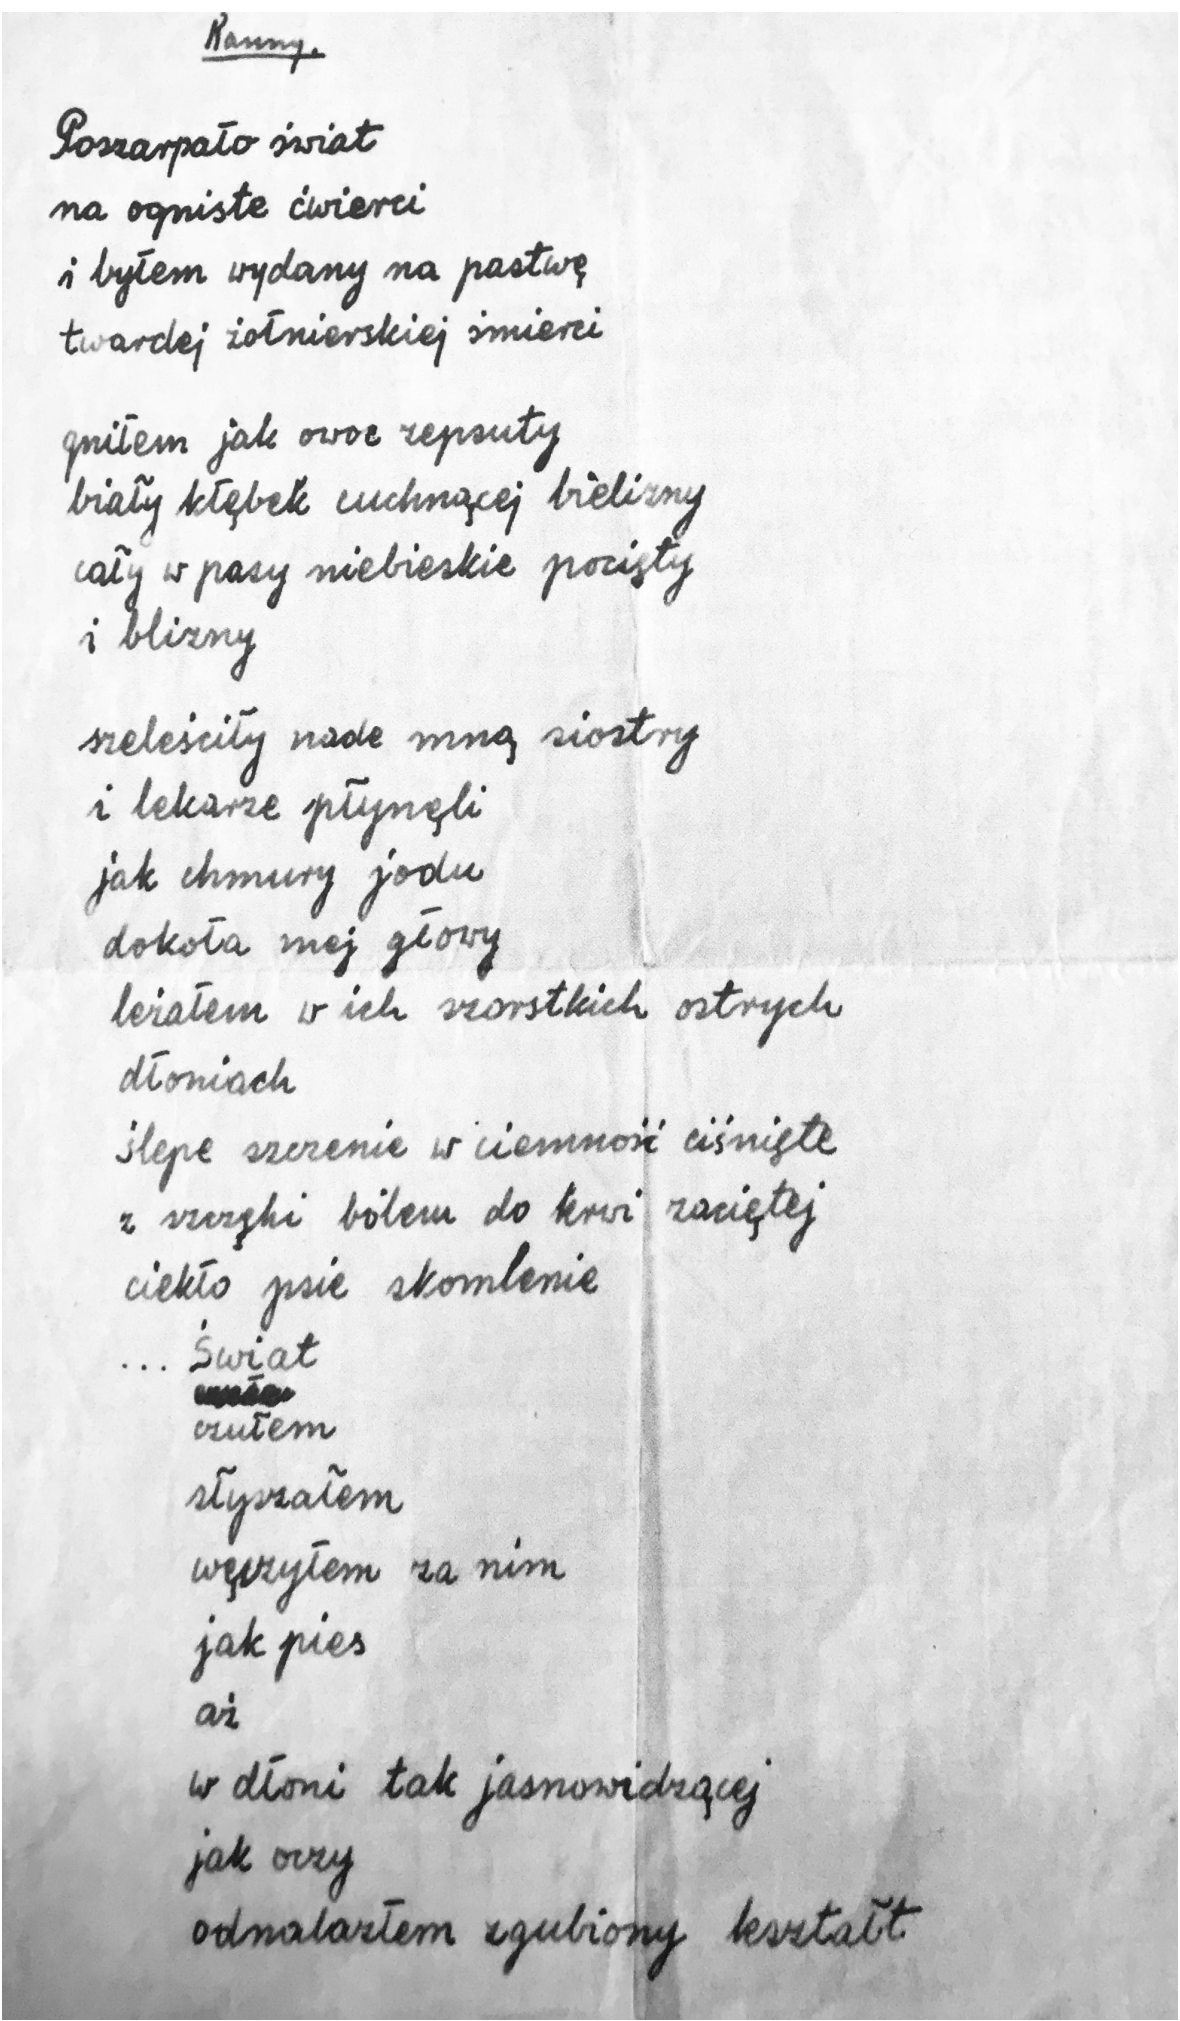 Ranny.
Poszarpało świat
na ogniste ćwierci
i byłem wydany na pastwę
twardej żołnierskiej śmierci
gniłem jak owoc zepsuty
biały kłębek cuchnącej bielizny
cały w pasy niebieskie pocięty
i blizny
szeleściły nade mną siostry
i lekarze płynęli
jak chmury jodu
dokoła mej głowy
leżałem w ich szorstkich ostrych
dłoniach
ślepe szczenie w ciemność ciśnięte
z szczęki bólem do krwi zaciętej
ciekło psie skomlenie
... Świat
czułem
słyszałem
węszyłem za nim
jak pies
aż
w dłoni tak jasnowidzącej
jak oczy
odnalazłem zgubiony kształt